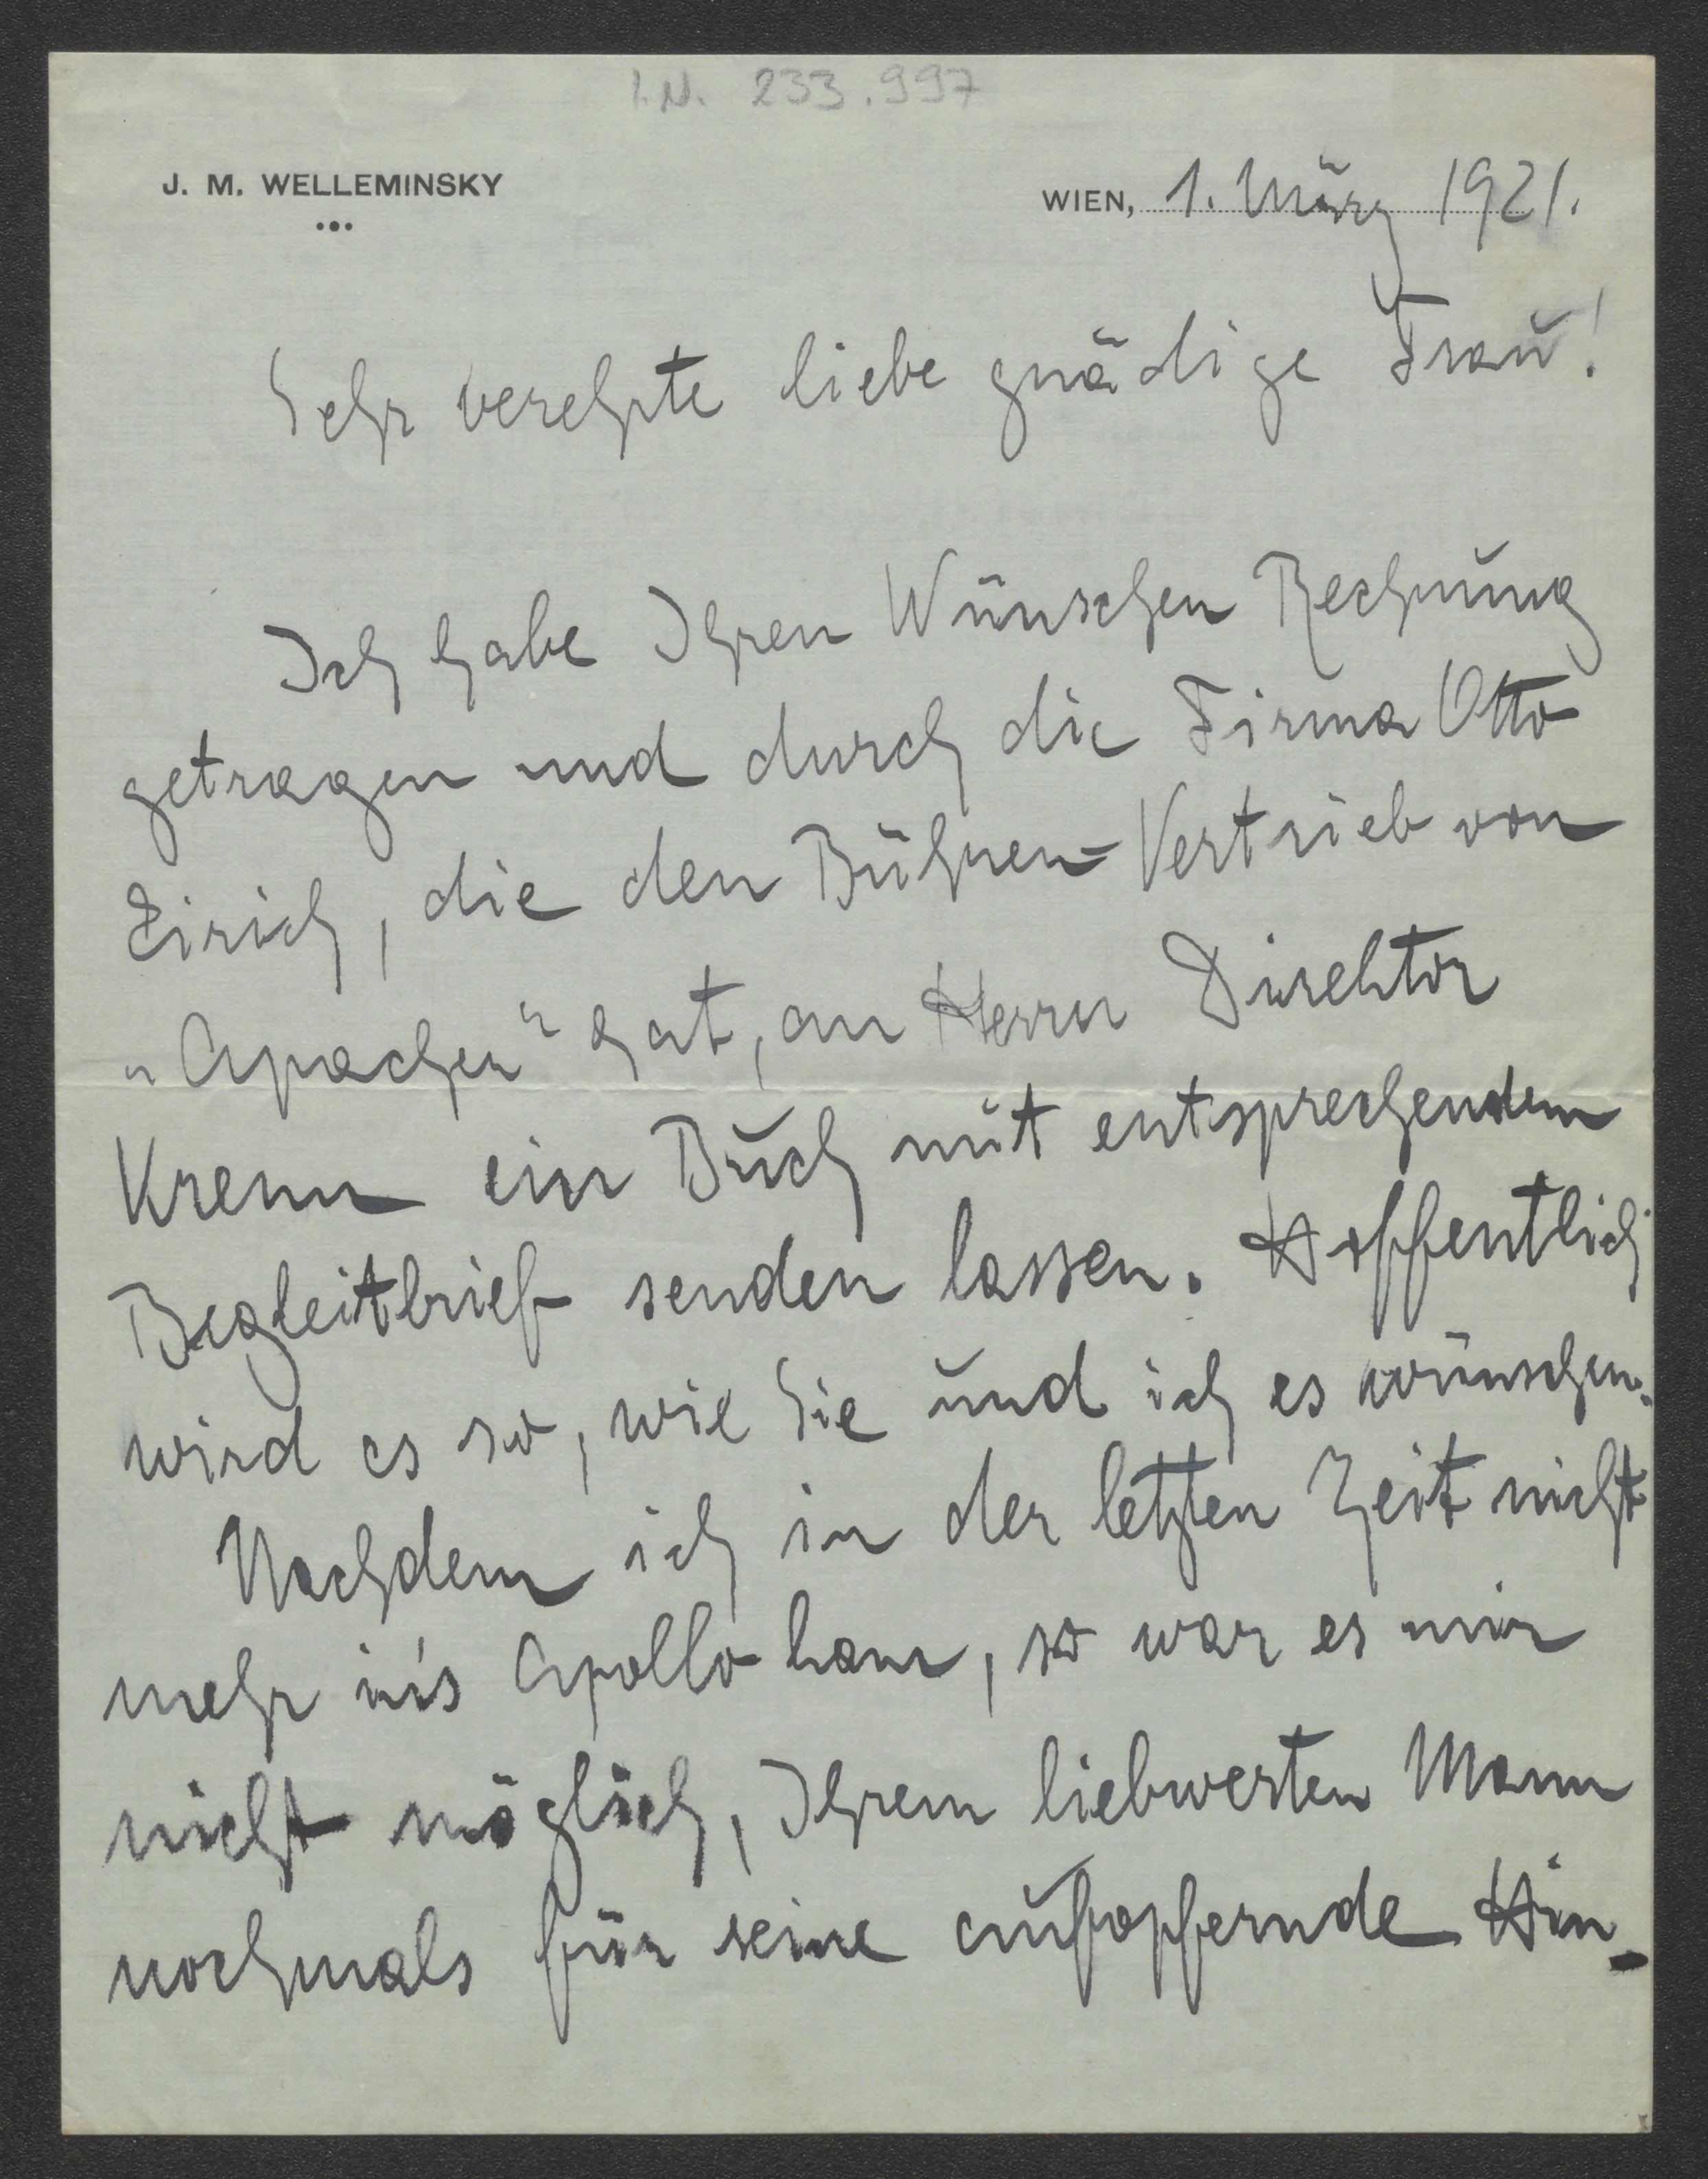 I.N. 233.997
J. M. WELLEMINSKY
WIEN, 1. März 1921.
Sehr verehrte liebe gnädige Frau!
Ich habe Ihren Wünschen Rechnung
getragen und durch die Firma Otto
Eirich, die den Bühnen-Vertrieb von
„Apachen“ hat, an Herrn Direktor
Krenn ein Buch mit entsprechendem
Begleitbrief senden lassen. Hoffentlich
wird es so, wie Sie und ich es wünschen.
Nachdem ich in der letzten Zeit nicht
mehr in's Apollo kam, so war es mir
nicht möglich, Ihrem liebwerten Mann
nochmals für seine aufopfernde Hin-